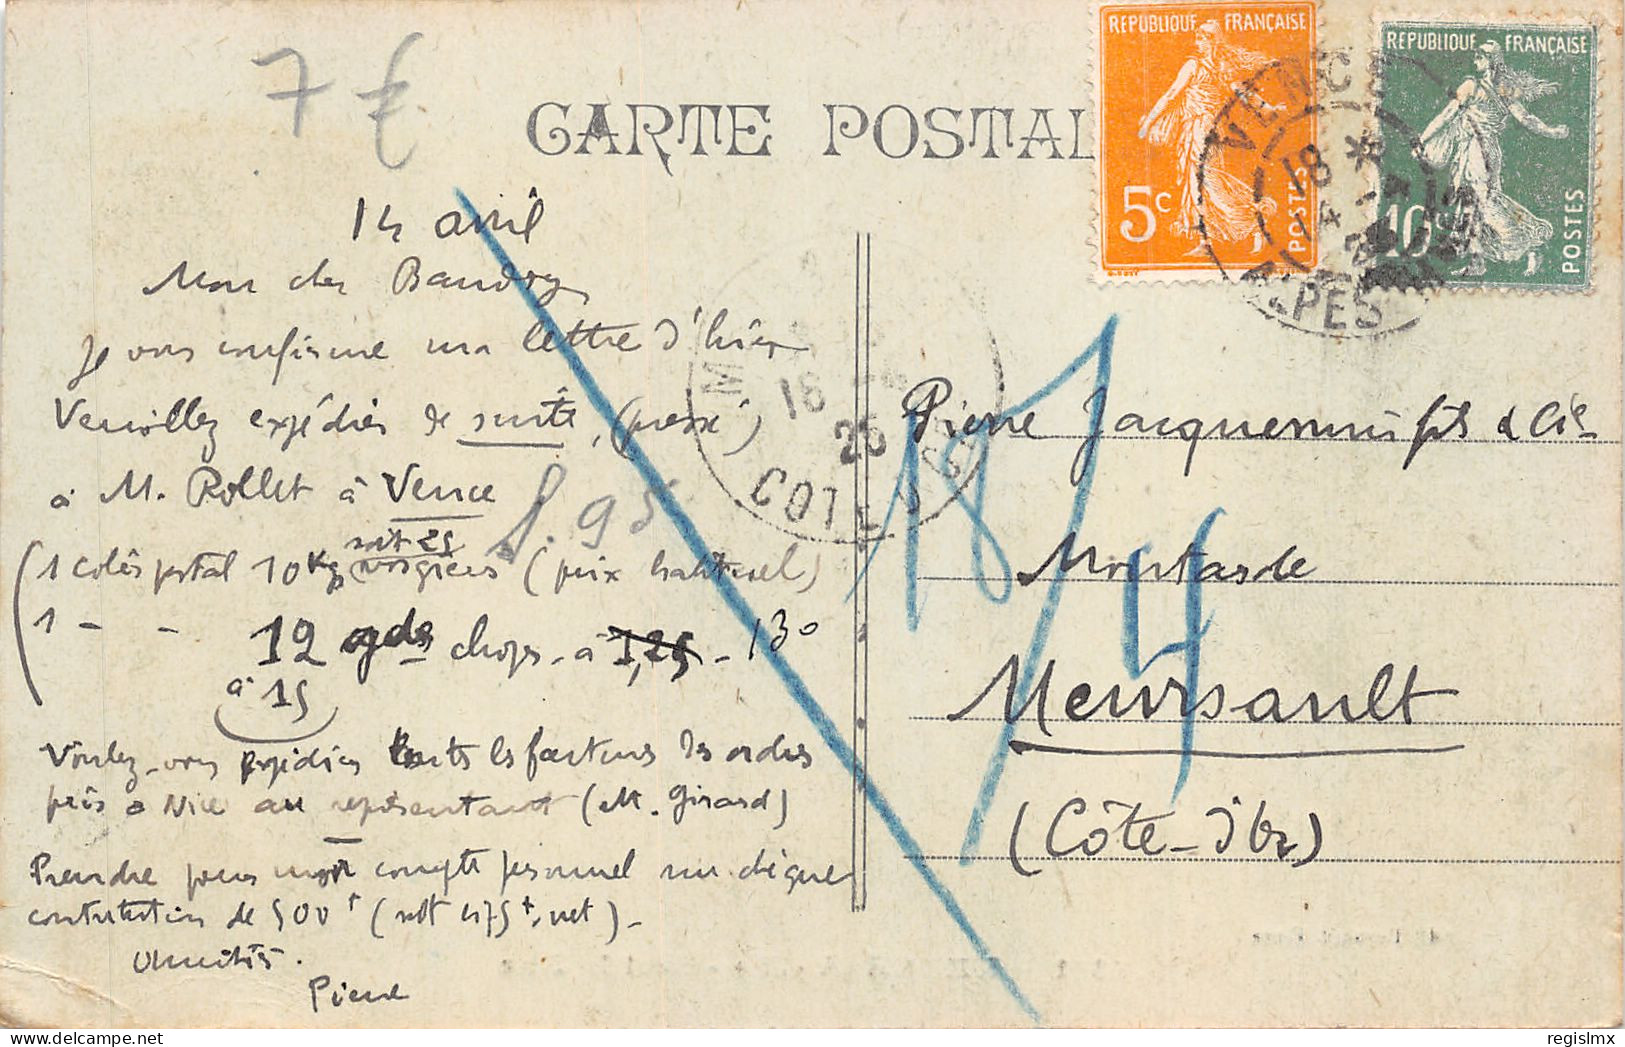 7 €
CARTE POSTAL
REPUBLIQUE FRANÇAISE
5c
POSTES
REPUBLIQUE FRANÇAISE
10c
POSTES
VENCE
18 *
14 - 4
25
ALPES
14 avril
Mon cher Baudry
Je vous confirme ma lettre d'hier
Veuillez expédier de suite, (pressé)
à M. Rollet à Vence
soit 25
(1 colis postal 10 Kgs (prix habituel)
1 - - 12 gds chops - à 1,25 - 130
à 15
f. 95
Voulez-vous expédier toute les factures des ordres
pris à Nice au représentant (M. Girard)
Prendre pour mon compte personnel un chèque
contribution de 500 f (soit 475 f, net) -
Amitiés.
Pierre
18
25
COTE D'OR
18/4
Pierre Jacquemini fils & Cie
Moutarde
Meursault
(Côte-d'Or)
regislmx